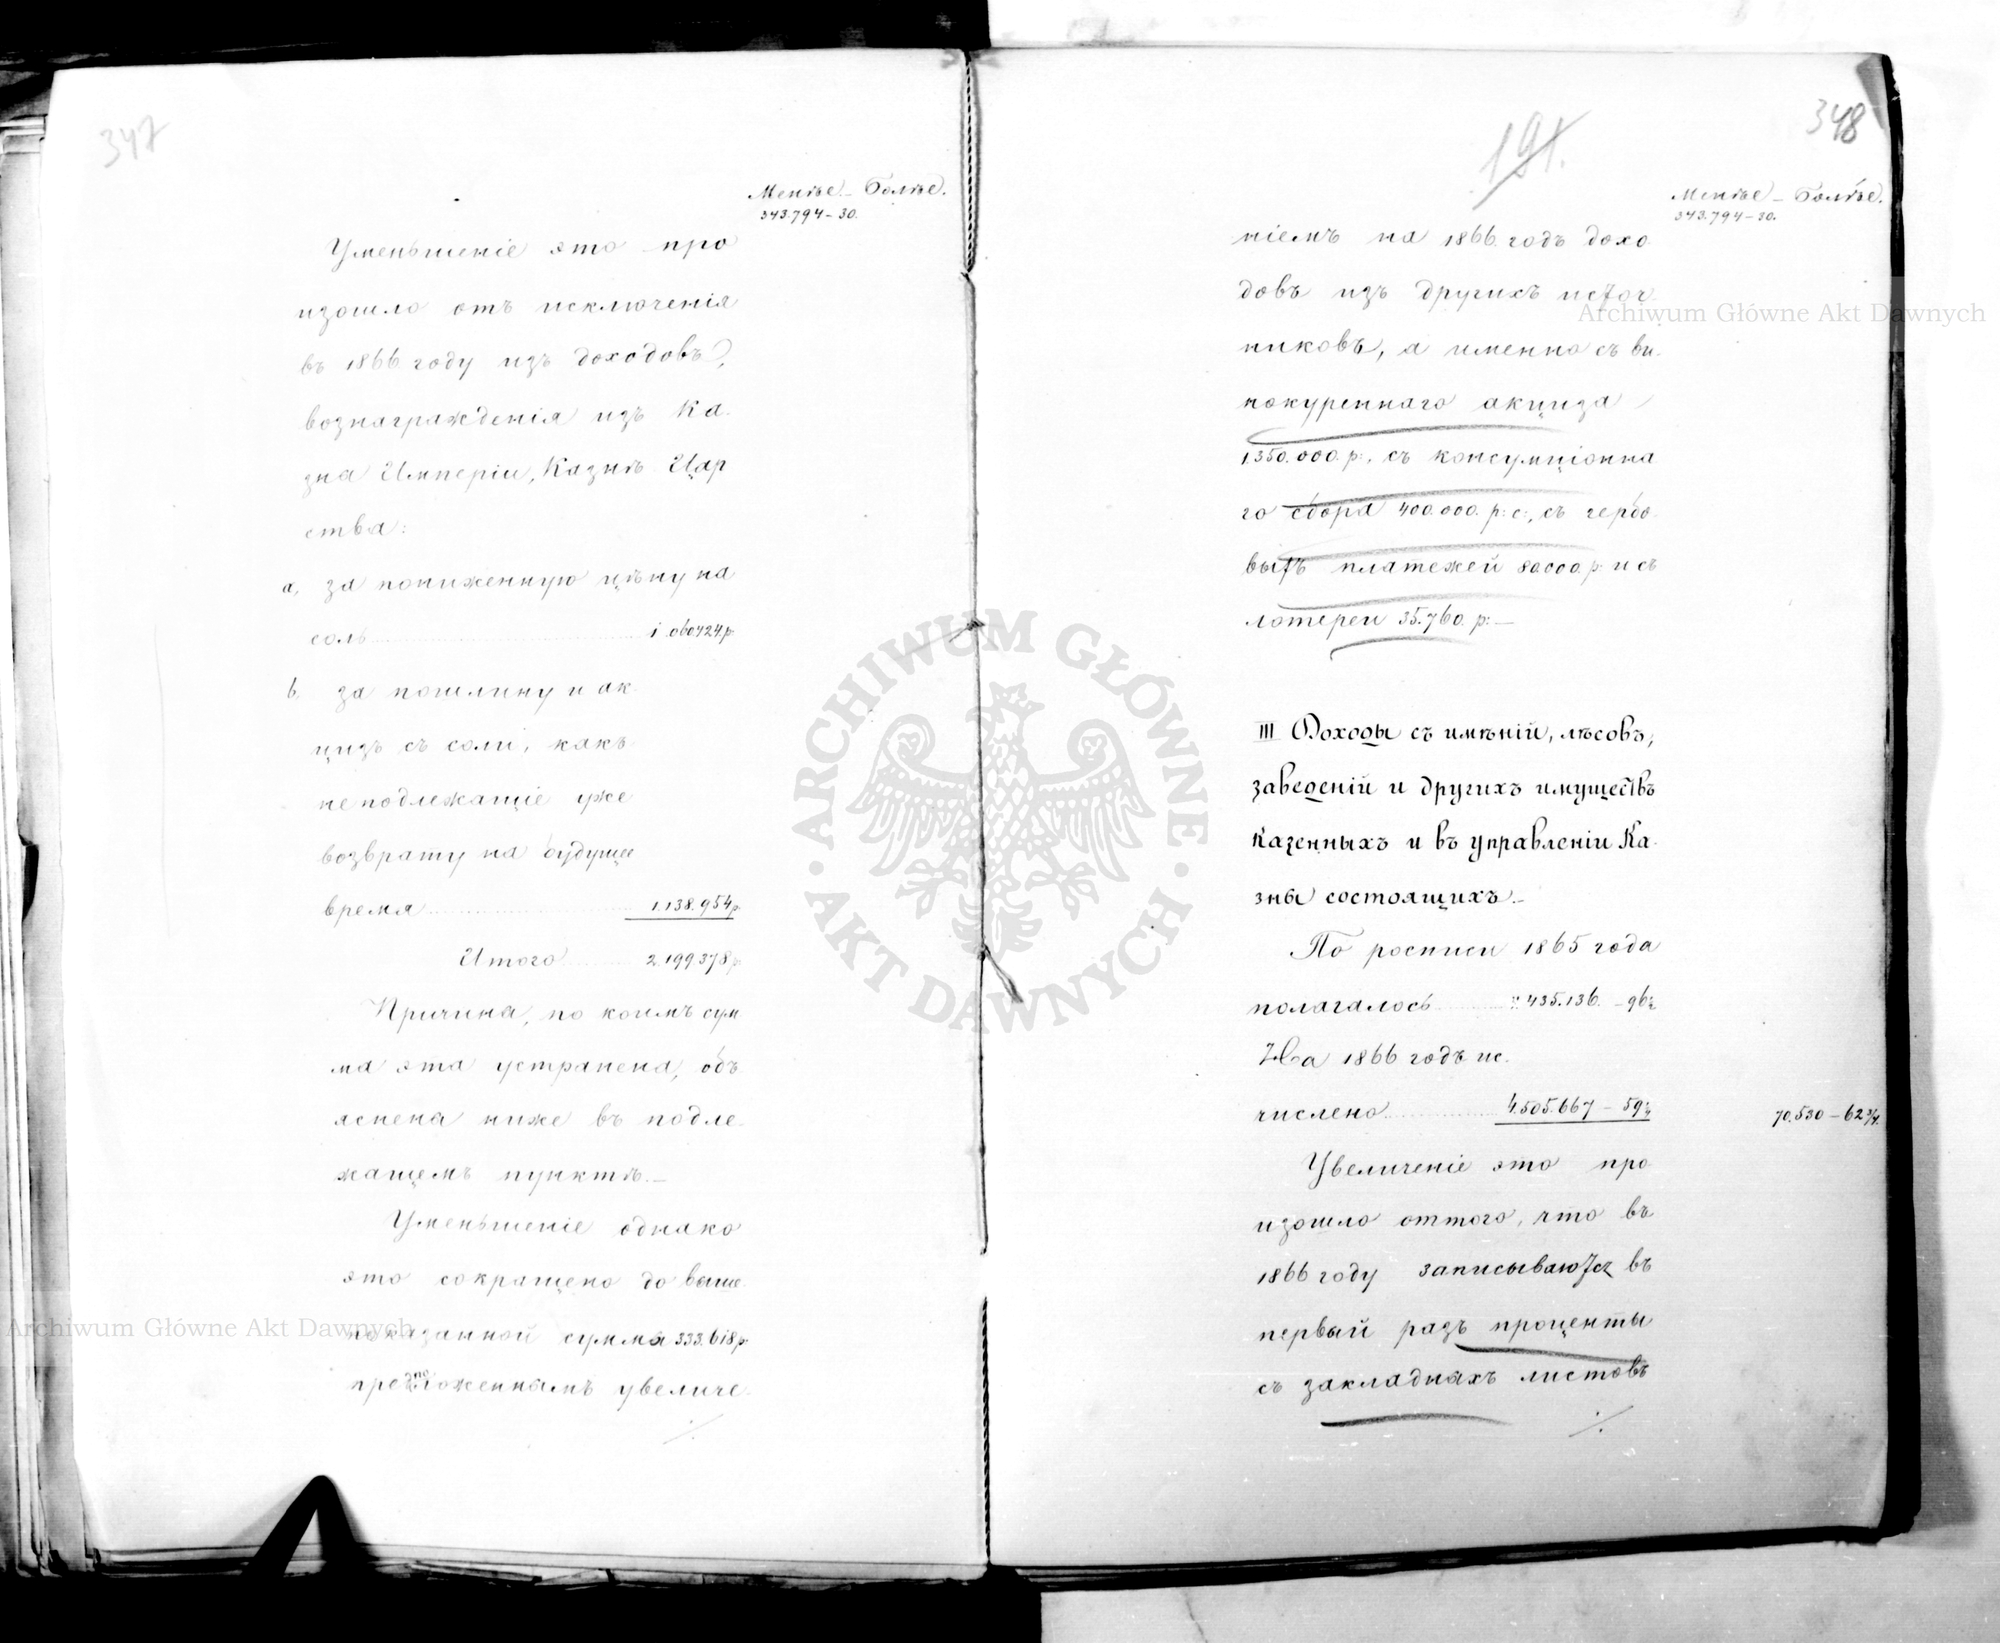 347
Менѣе – Болѣе.
343.794 – 30.
Уменьшеніе это про
изошло отъ исключенія
въ 1866 году изъ доходовъ,
вознагражденія изъ Ка-
зна Имперіи, Казнѣ Цар
ства:
а, за пониженную цѣну на
соль 1.060424 р.
b, за пошлину и ак-
цизъ съ соли, какъ
неподлежащіе уже
возврату на будущее
время 1.138.954 р.
Итого 2.199.378 р.
Причина, по коимъ сум
ма эта устранена, объ
яснена ниже въ подле-
жащемъ пунктѣ. –
Уменьшеніе однако
это сокращено до выше
показанной сумма 333.618 р.
предположеннымъ увеличе-
./.
191.
348
Менѣе – Болѣе.
343.794 – 30.
ніемъ на 1866 годъ дохо
довъ изъ другихъ источ-
никовъ, а именно съ ви-
нокуреннаго акциза
1.350.000. р:, съ консумціонна
го сбора 400.000. р: с:, съ гербо-
выхъ платежей 80.000. р: и съ
лотереи 35.760. р: –
III Доходы съ имѣній, лѣсовъ,
заведеній и другихъ имуществъ
Казенныхъ и въ управленіи Ка-
зны состоящихъ. –
По росписи 1865 года
полагалось 435.136. – 96
На 1866 годъ ис-
числено 4.505.667 – 59
70.530 – 62 3/4.
Увеличеніе это про
изошло оттого, что въ
1866 году записываются въ
первый разъ проценты
съ закладныхъ листовъ
./.
Archiwum Główne Akt Dawnych
Archiwum Główne Akt Dawnych
ARCHIWUM GŁÓWNE · AKT DAWNYCH ·